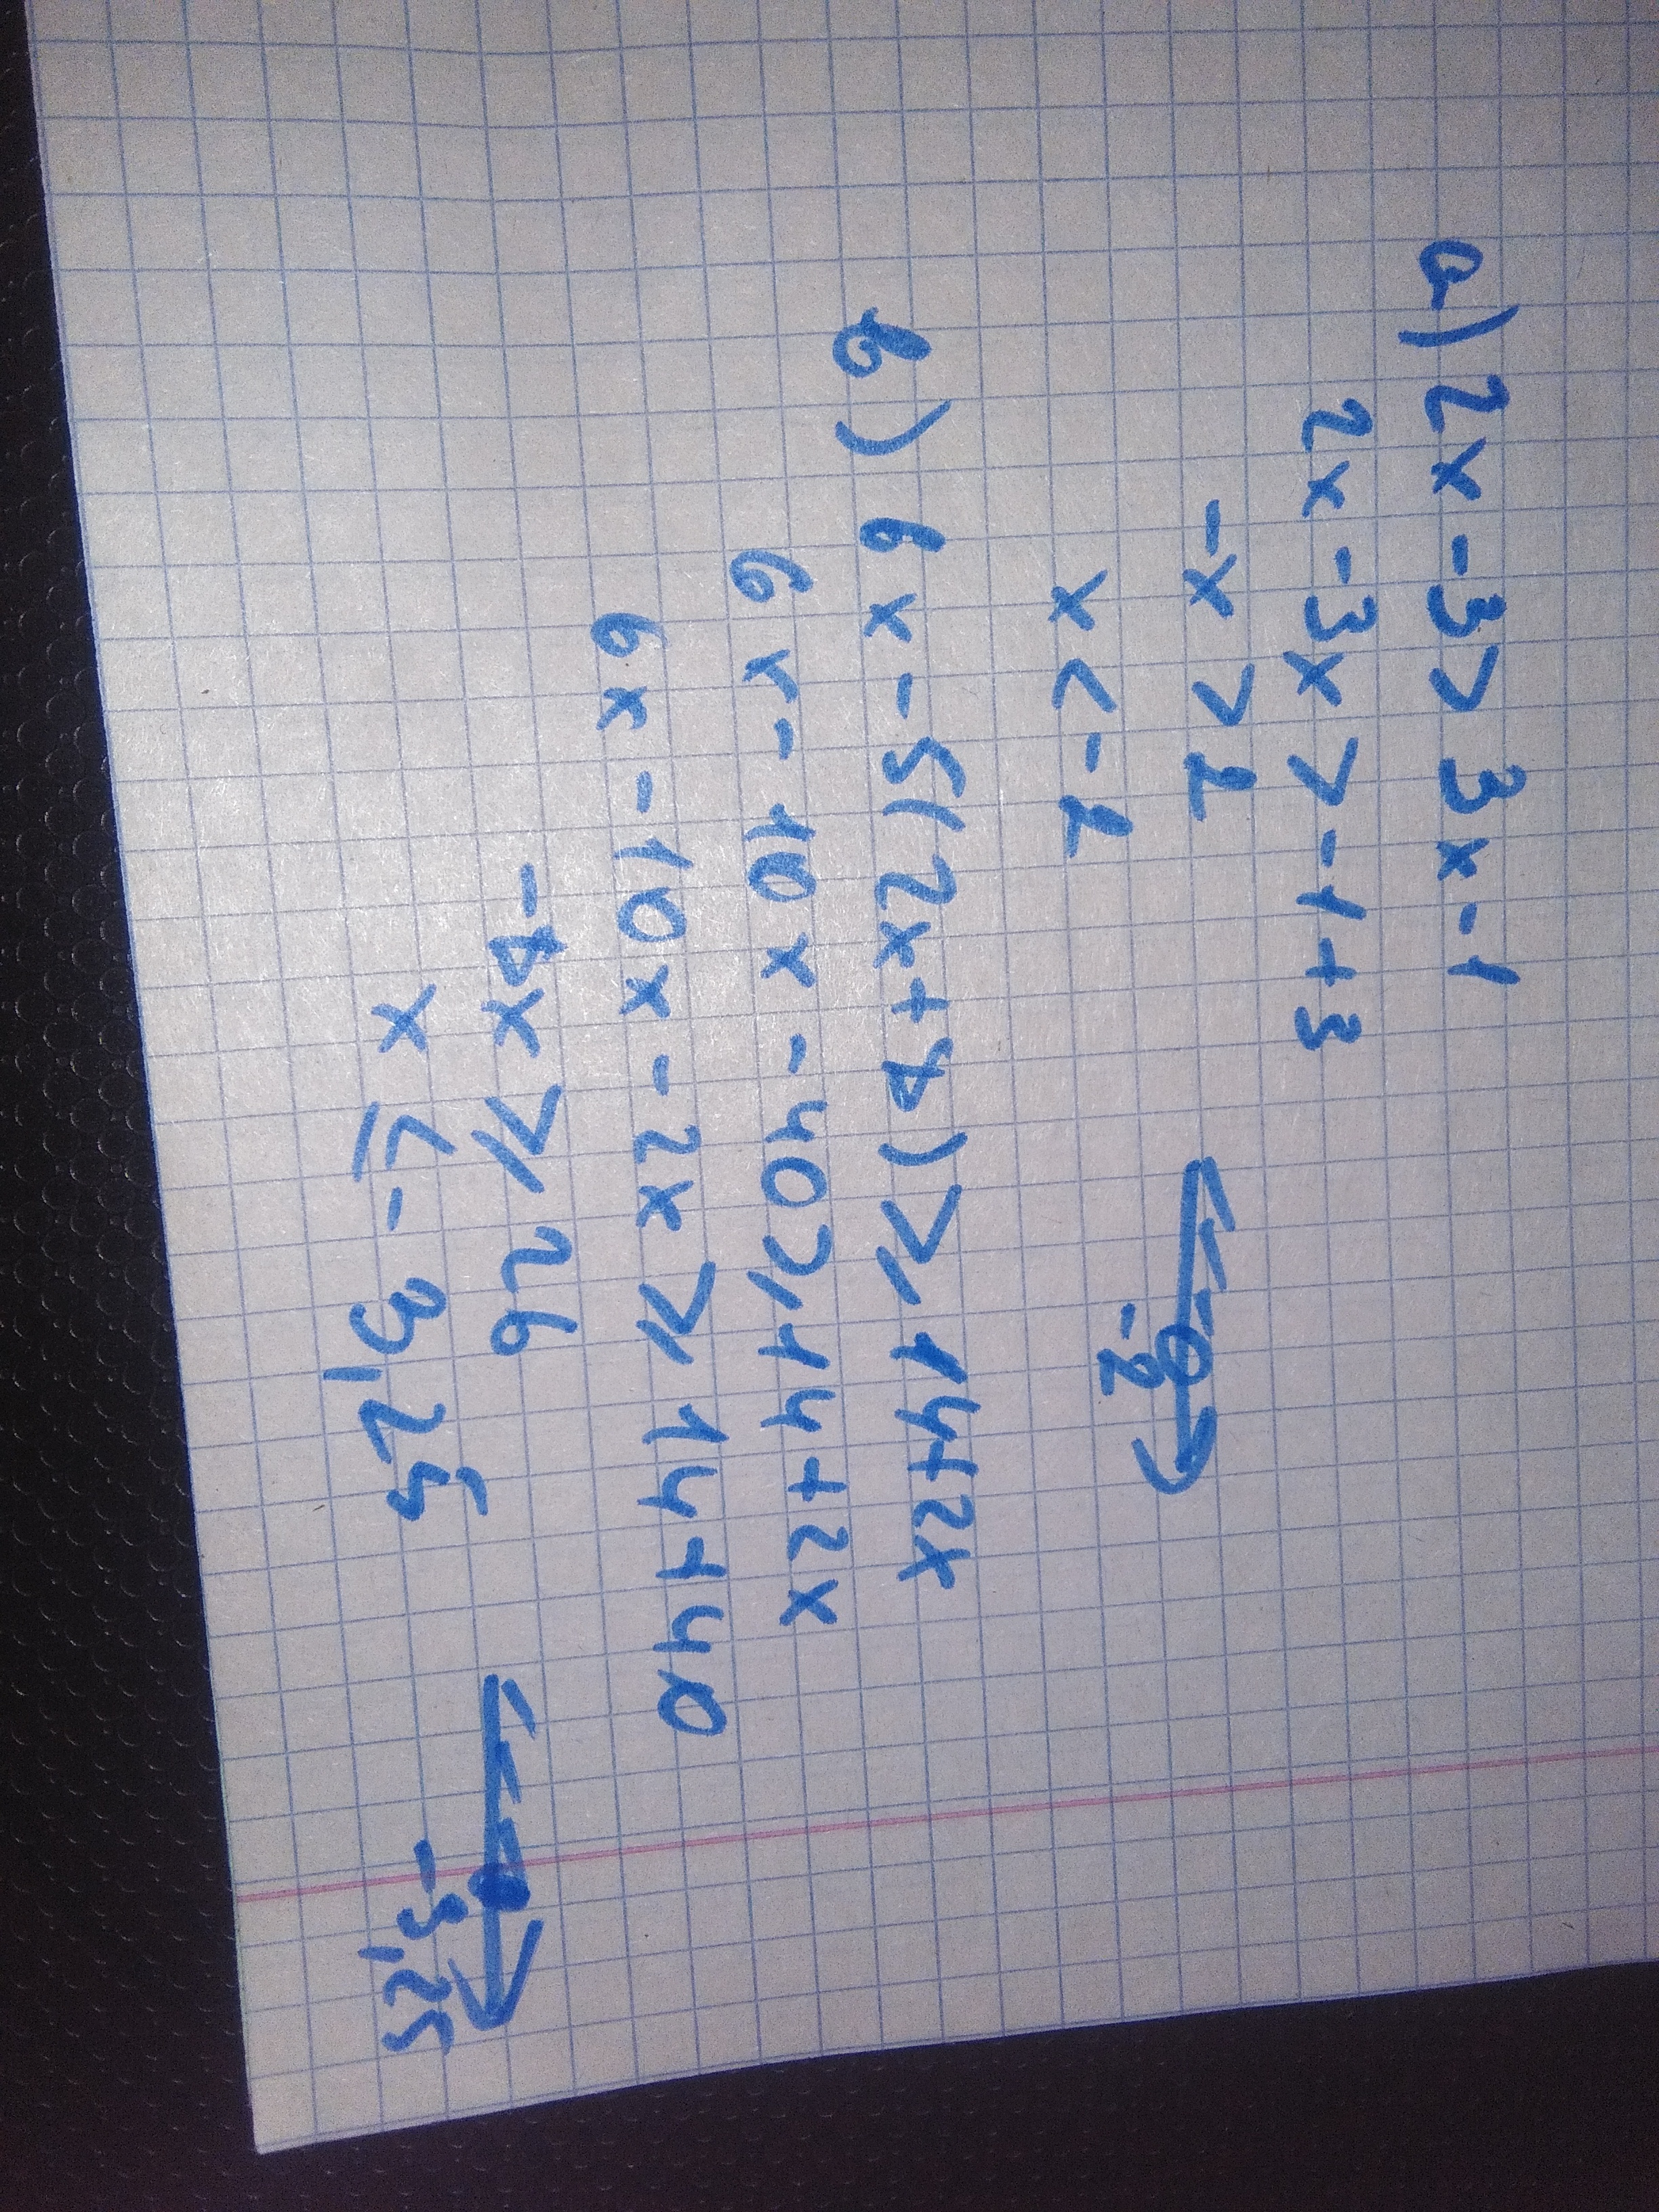 а) 2x-3>3x-1
2x-3x>-1+3
-x>2
x<-2
-2
в) 6x-5(2x+8)⩾14+2x
6x-10x-40⩾14+2x
6x-10x-2x⩾14+40
-8x⩾26
x≤-3,25
-3,25